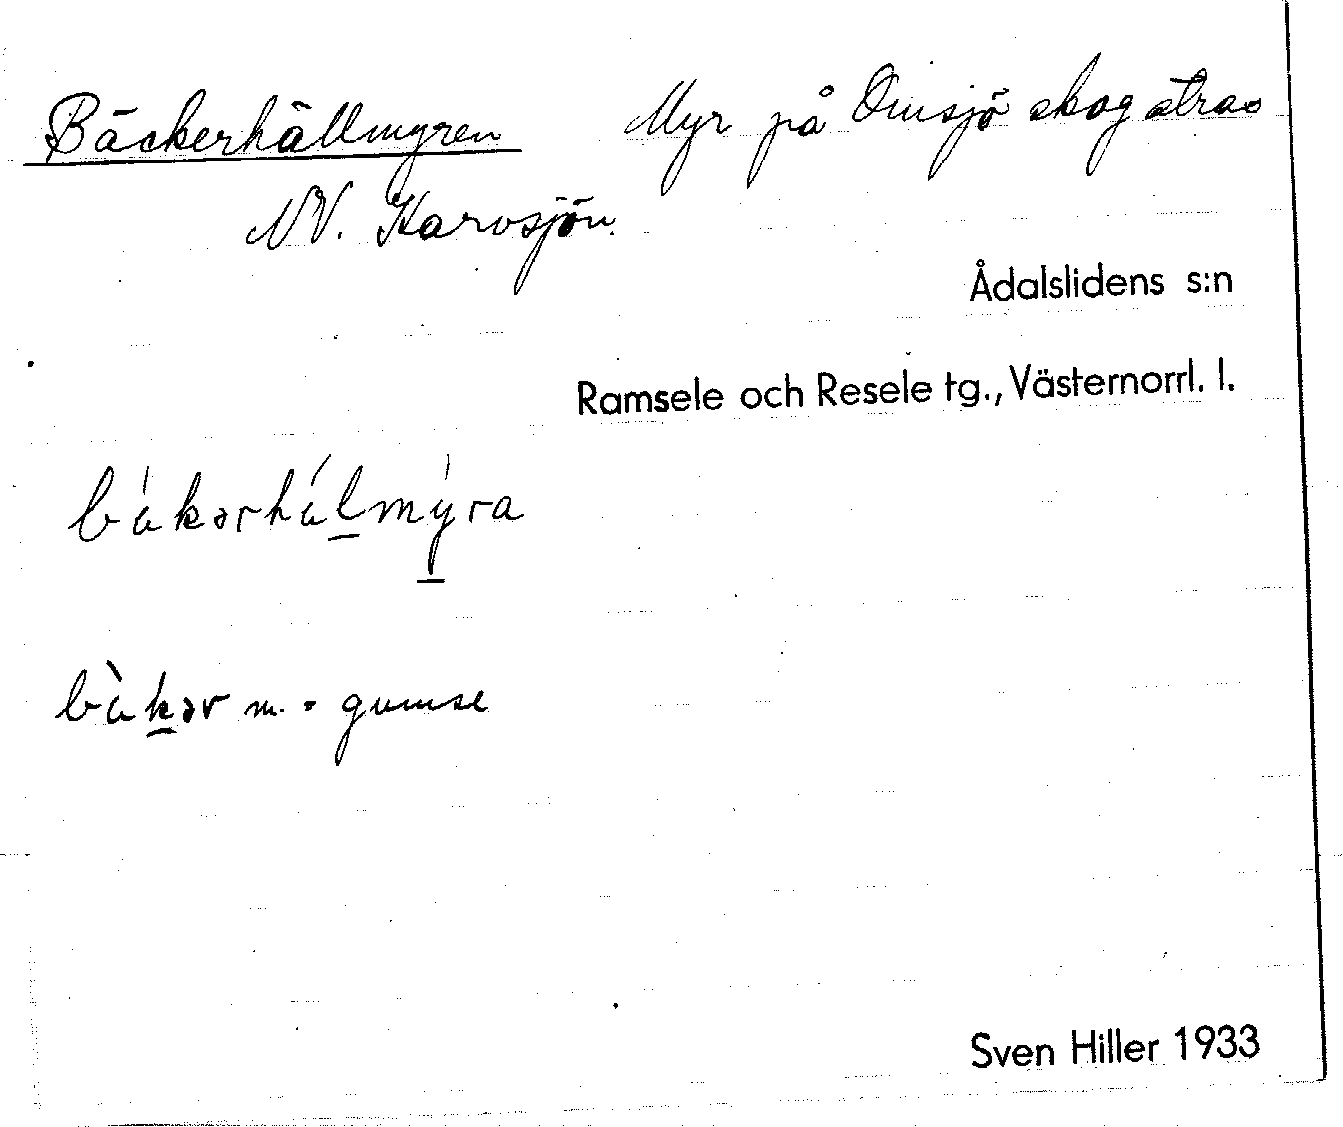 Bäckerhällmyren Myr på Omsjö skog strax
NV. Karvsjön.
Ådalslidens s:n
Ramsele och Resele tg., Västernorrl. l.
bäkərhälmýra
bäkər m. = gumse
Sven Hiller 1933